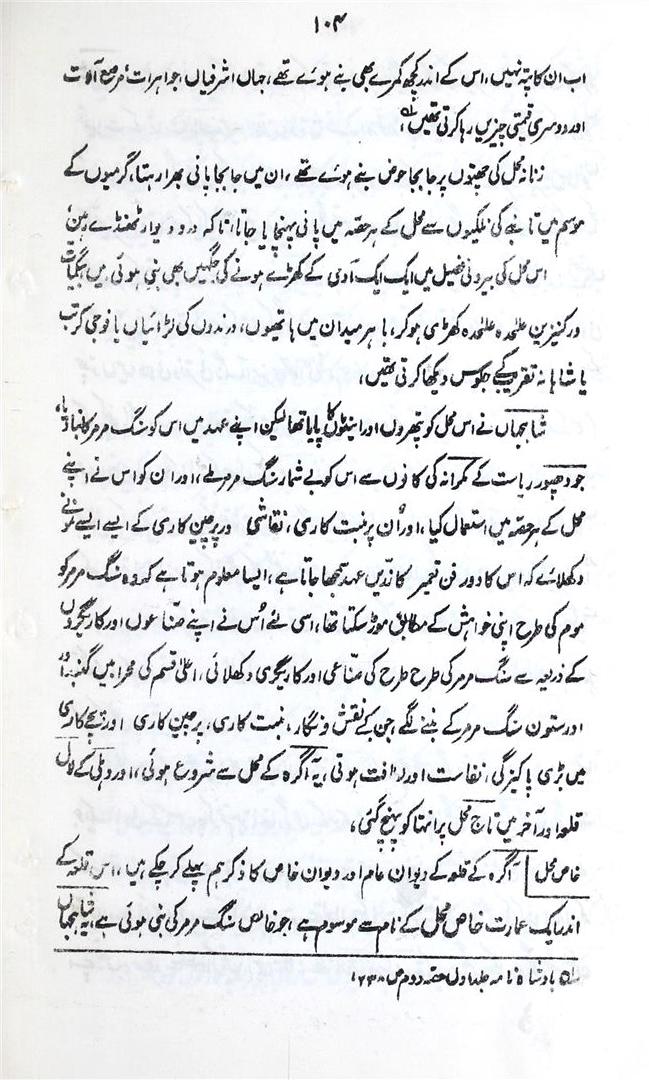 ۱۰۴
اب ان کا پتہ نہیں، اس کے اندر کچھ کمرے بھی بنے ہوئے تھے، جہاں اشرفیاں، جواہرات، مرصع آلات
اور دوسری قیمتی چیزیں رہا کرتی تھیں،
زنانہ محل کی چھتوں پر جابجا حوض بنے ہوئے تھے، ان میں جابجا پانی بھرا رہتا، گرمیوں کے
موسم میں تانبے کی نلکیوں سے محل کے ہر حصہ میں پانی پہنچایا جاتا تاکہ در و دیوار ٹھنڈے رہیں،
اس محل کی بیرونی فصیل میں ایک ایک آدمی کے کھڑے ہونے کی جگہیں بھی بنی ہوئی ہیں بیگمات
ور کنیزیں علٰحدہ علٰحدہ کھڑی ہو کر، باہر میدان میں ہاتھیوں، درندوں کی لڑائیاں یا فوجی کرتب
یا شاہانہ تقریب کے جلوس دیکھا کرتی تھیں،
شاہجہاں نے اس محل کو پتھروں اور اینٹوں کا پایا تھا لیکن اپنے عہد میں اس کو سنگ مرمر کا بنا دیا،
جودھپور ریاست کے مکرانہ کی کانوں سے اس کو بے شمار سنگ مرمر ملے، اور ان کو اس نے اپنے
محل کے ہر حصہ میں استعمال کیا، اور اُن پر منبت کاری، نقاشی ور پرچین کاری کے ایسے ایسے نمونے
دکھلائے کہ اس کا دور فن تعمیر کا زریں عہد سمجھا جاتا ہے، ایسا معلوم ہوتا ہے کہ وہ سنگ مرمر کو
موم کی طرح اپنی خواہش کے مطابق موڑ سکتا تھا، اسی لئے اُس نے اپنے صناعوں اور کاریگروں
کے ذریعہ سے سنگ مرمر کی طرح طرح کی صناعی اور کاریگری دکھلائی، اعلیٰ قسم کی محرابیں گنبد اور
اور ستون سنگ مرمر کے بننے لگے، جن کے نقش و نگار، منبت کاری، پرچین کاری اور پچے کاری
میں بڑی پاکیزگی، نفاست اور لطافت ہوتی، یہ آگرہ کے محل سے شروع ہوئی، اور دہلی کے لال
قلعہ اور آخر میں تاج محل پر انتہا کو پہنچ گئی،
خاص محل آگرہ کے قلعہ کے دیوان عام اور دیوان خاص کا ذکر ہم پہلے کر چکے ہیں، اس قلعہ کے
اندر ایک عمارت خاص محل کے نام سے موسوم ہے، جو خالص سنگ مرمر کی بنی ہوئی ہے، یہ شاہجہاں
بادشاہ نامہ جلد اول حصہ دوم ص ۲۳۸،